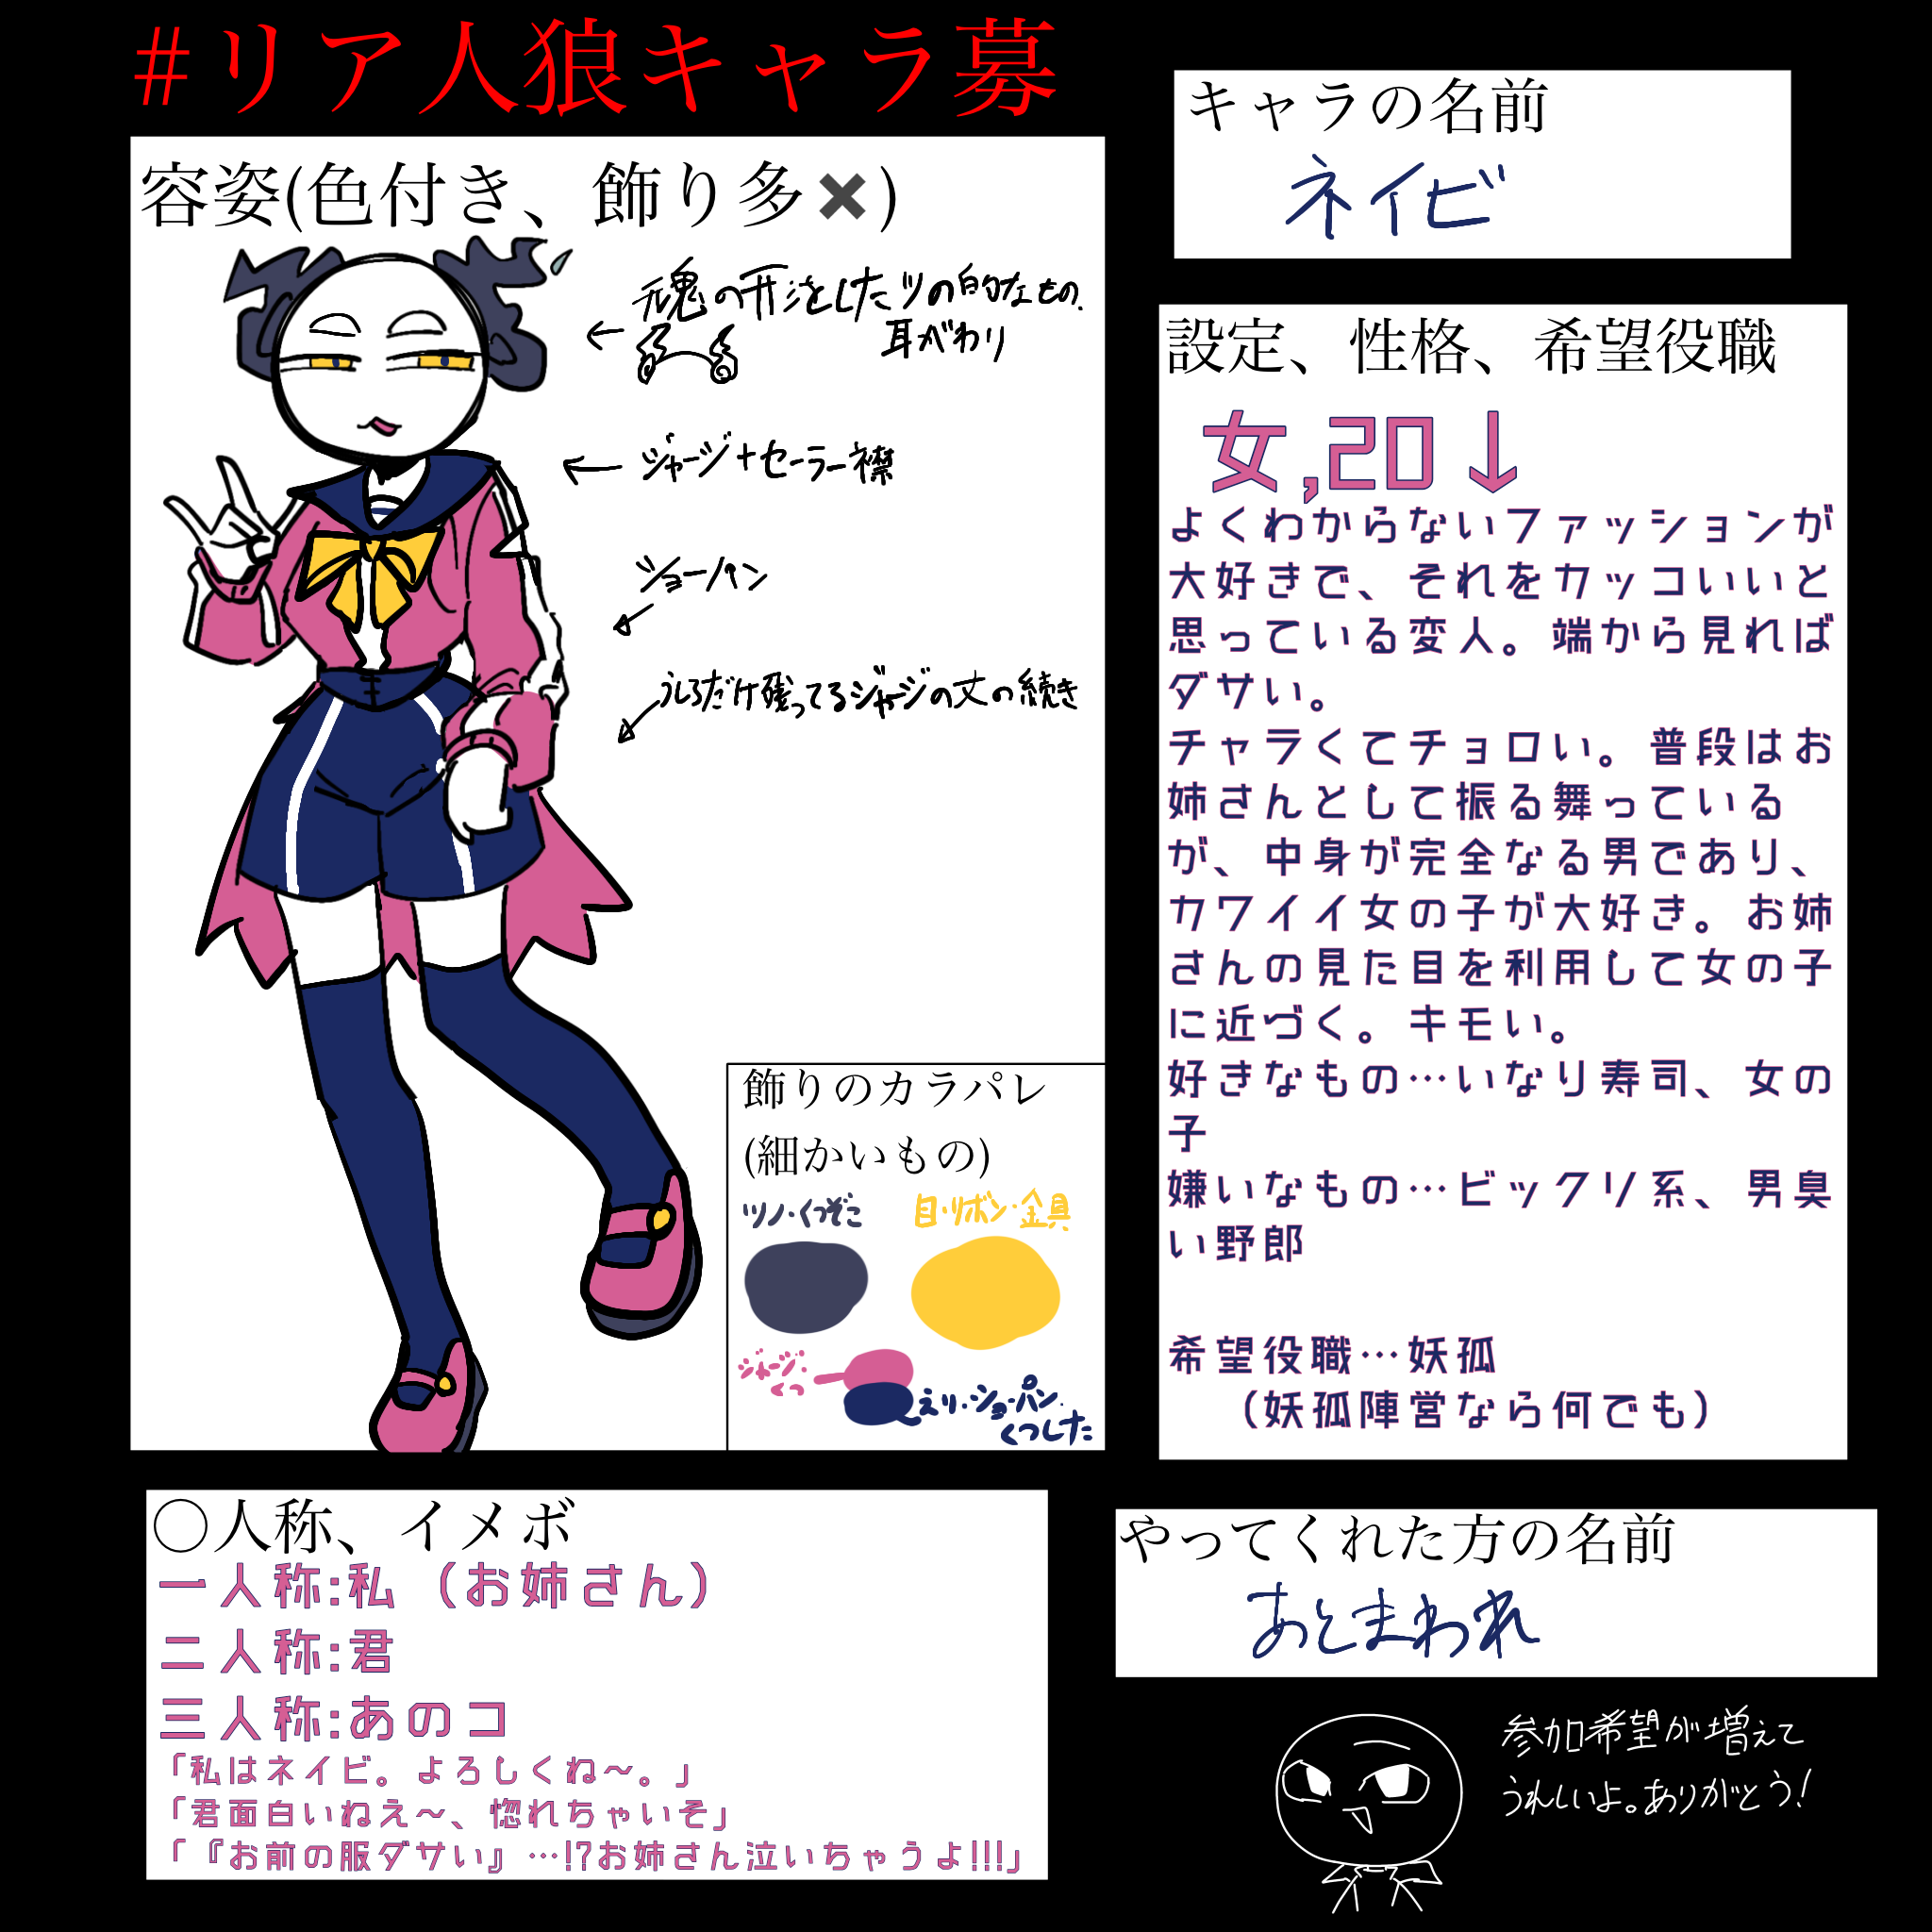 #リア人狼キャラ募
容姿(色付き、飾り多✖)
魂の形をしたツの的なもの.
耳がわり
ジャージ+セーラー襟
ショーパン
うしろだけ残ってるジャージの丈の続き
飾りのカラパレ
(細かいもの)
ツノ・くつぞこ
目・リボン・金具
ジャージ・
くつ
えり・ショーパン・
くつした
キャラの名前
ネイビ
設定、性格、希望役職
女,20↓
よくわからないファッションが
大好きで、それをカッコいいと
思っている変人。端から見れば
ダサい。
チャラくてチョロい。普段はお
姉さんとして振る舞っている
が、中身が完全なる男であり、
カワイイ女の子が大好き。お姉
さんの見た目を利用して女の子
に近づく。キモい。
好きなもの…いなり寿司、女の
子
嫌いなもの…ビックリ系、男臭
い野郎
希望役職…妖狐
（妖狐陣営なら何でも）
〇人称、イメボ
一人称:私（お姉さん）
二人称:君
三人称:あのコ
「私はネイビ。よろしくね〜。」
「君面白いねえ〜、惚れちゃいそ」
「『お前の服ダサい』…!?お姉さん泣いちゃうよ!!!」
やってくれた方の名前
あとまわれ
参加希望が増えて
うれしいよ。ありがとう!